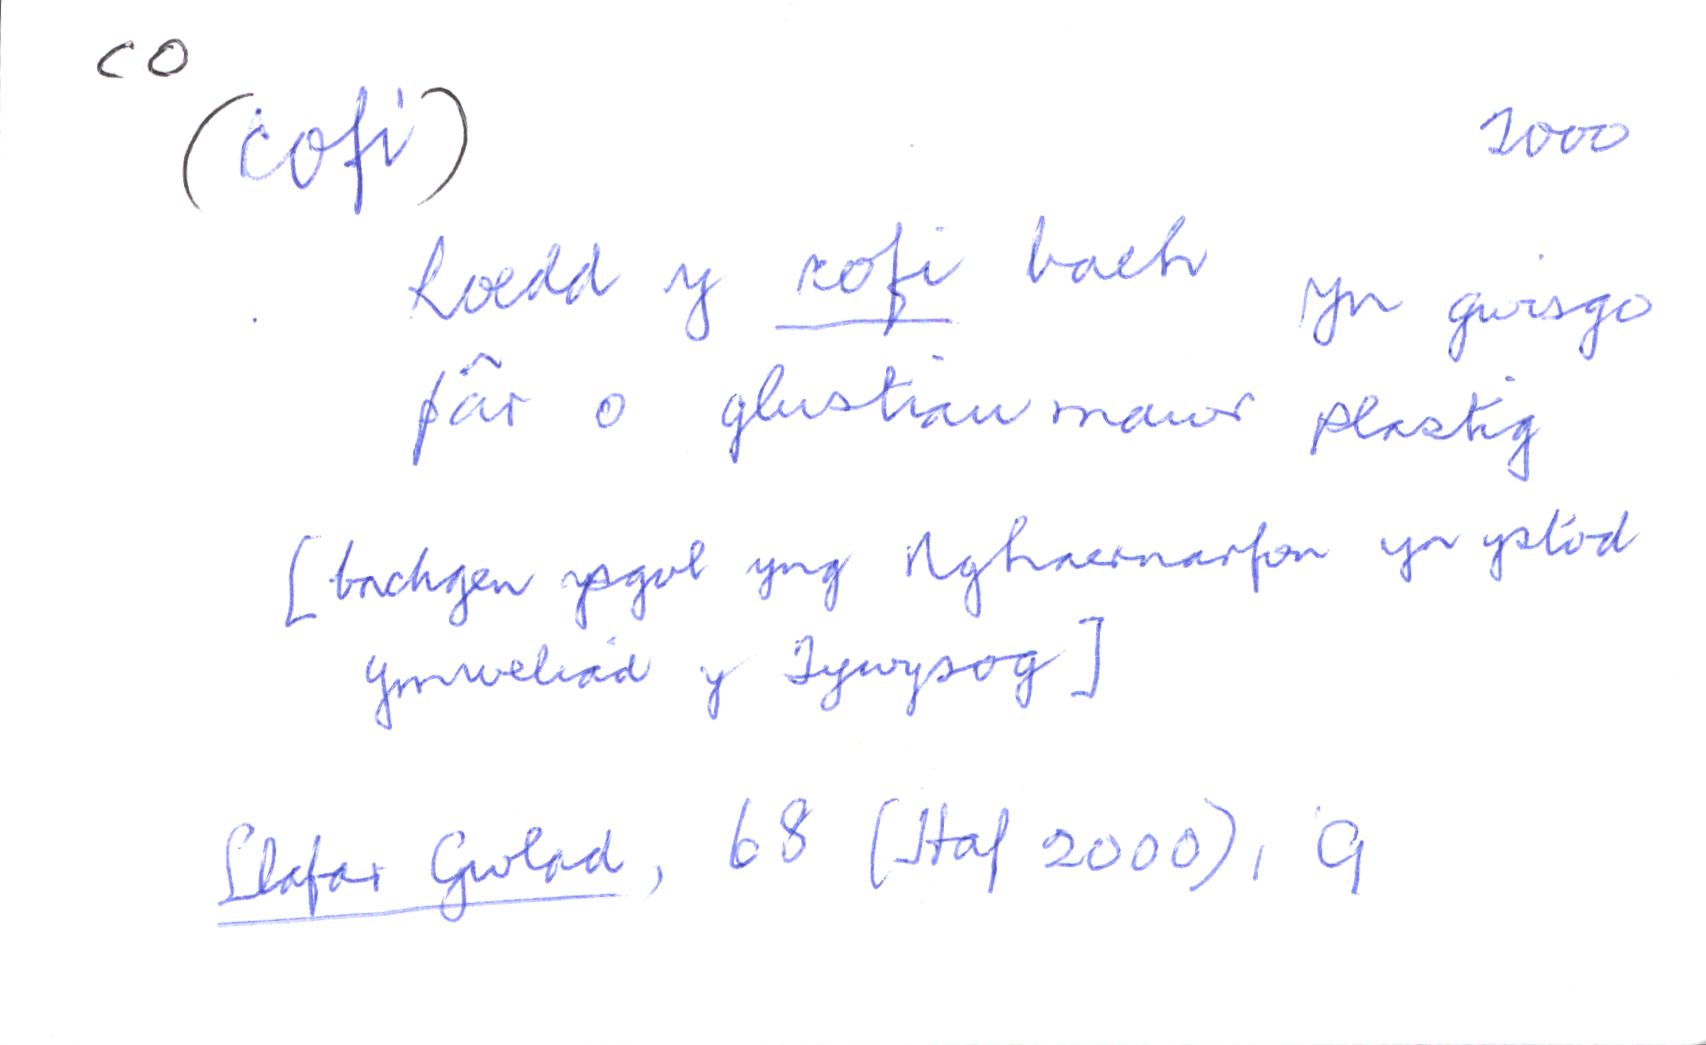 co
(cofi)
2000
Roedd y cofi bach yn gwisgo
pâr o glustiau mawr plastig
[bachgen ysgol yng Nghaernarfon yn ystod
ymweliad y Tywysog]
Llafar Gwlad, 68 (Haf 2000), 9